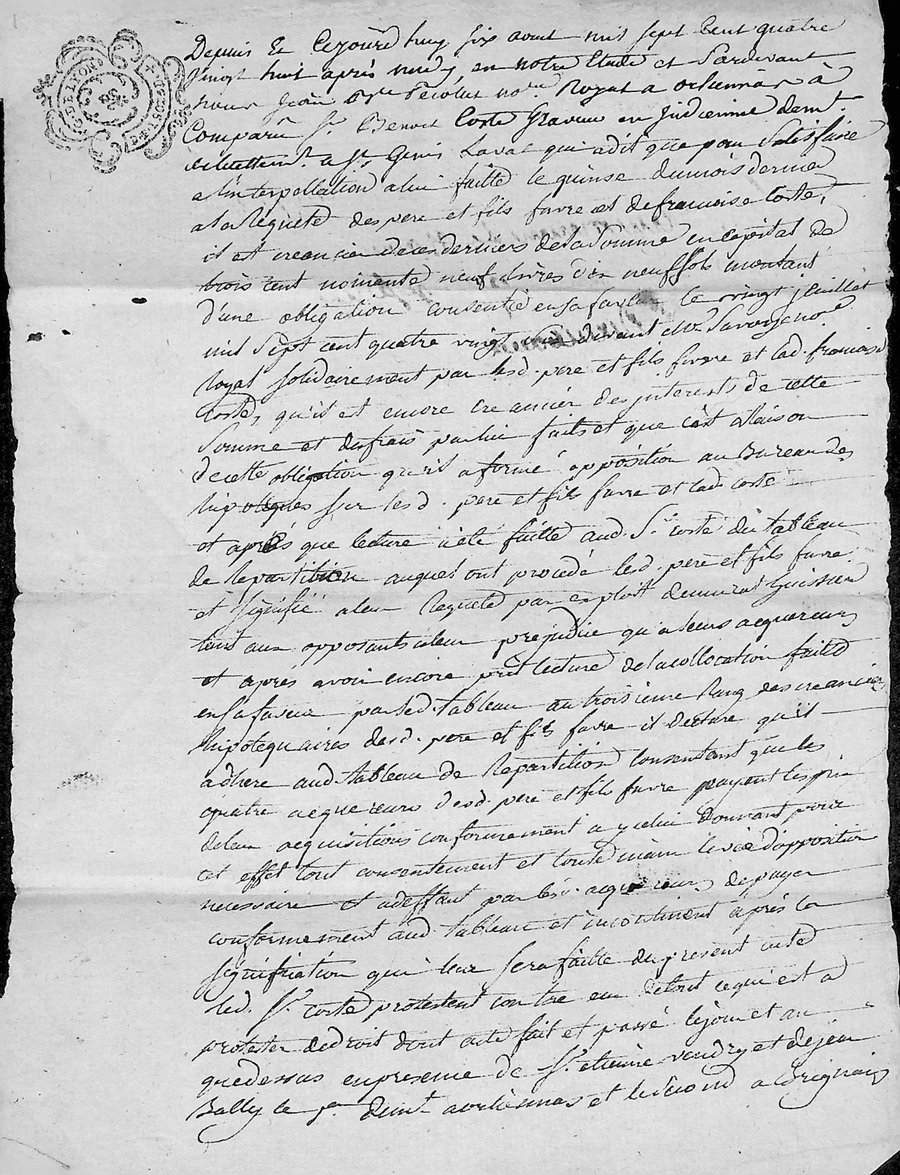 GEN. DE LYON
Depuis Et Cejourd'huy six aout mil sept Cent quatre
Vingt huit après midy, en notre Etude et Pardevant
nous Royal a orliennas à
Comparu Sr. Benoit Coste Graveur en Indienne demt
a St. Genis Laval qui a dit que pour Satisfaire
a l'interpellation a lui faitte le quinse du mois dernier
a la Requete des pere et fils favre et de francoise Coste,
il est creancier de ces derniers de la Somme en Capital de
trois Cent nonente neuf Livres dix neuf sols montant
d'une obligation consentie en sa faveur le vingt juillet
mil Sept cent quatre vingt devant Me.
Royal solidairement par lesd. pere et fils favre et lad. francoise
Coste, qu'il est encore creancier des interets de cette
Somme et des frais par lui faits et que c'est a Raison
de cette obligation qu'il a formé opposition au Bureau des
hipoteques sur lesd. pere et fils favre et lad. Coste
et après que lecture a été faitte aud. Sr. Coste du tableau
de Repartition auquel ont procédé lesd. pere et fils favre
et signifié a leur Requete par exploit de huissier
tant aux opposants a leur prejudice qu'a leurs acquereurs
et après avoir encore pris lecture de la collocation faitte
en sa faveur par led. tableau au troisieme Rang des creanciers
hipotequaires desd. pere et fils favre il declare qu'il
adhere aud. tableau de Repartition Consentant que les
quatre acquereurs desd. pere et fils favre payent les prix
de leur acquisitions conformement a y celui Donnant pour
cet effet tout consentement et toutte main levée d'opposition
necessaire et a deffaut par les d. acquereurs de payer
conformement aud. tableau et incontinent après la
signification qui leur sera faitte du present acte
led. Sr. Coste protestent contre eux de tout ce qui est a
protester de droit dont acte fait et passé le jour et an
que dessus en presence de Sr. etienne et de jean
Bally le pr. demt. a orliennas et le second a Brignais